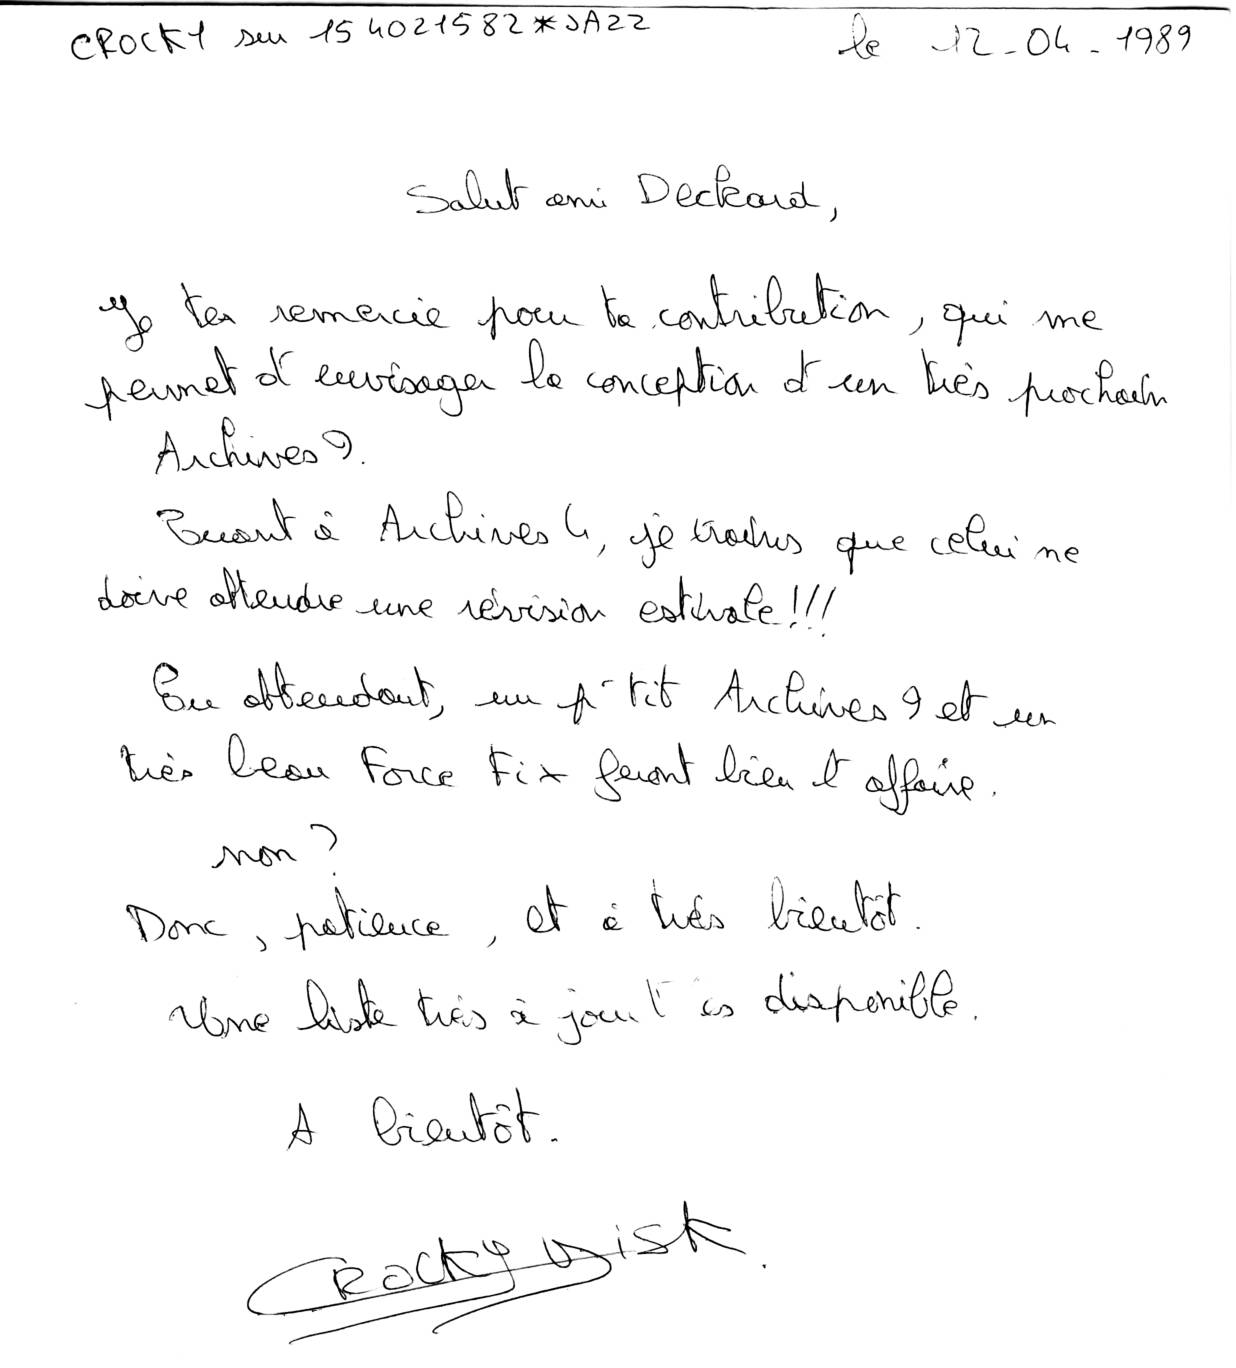 CROCKY sur 154021582*JAZZ le 12-04-1989
Salut ami Deckard,
Je te remercie pour ta contribution, qui me
permet d'envisager la conception d'un très prochain
Archives 9.
Quant à Archives 4, je crains que celui ne
doive attendre une révision estivale!!!
En attendant, un p'tit Archives 9 et un
très beau Force Fix feront bien l'affaire.
non?
Donc, patience, et à très bientôt.
Une liste très à jour est disponible.
A bientôt.
CROCKY DISK.